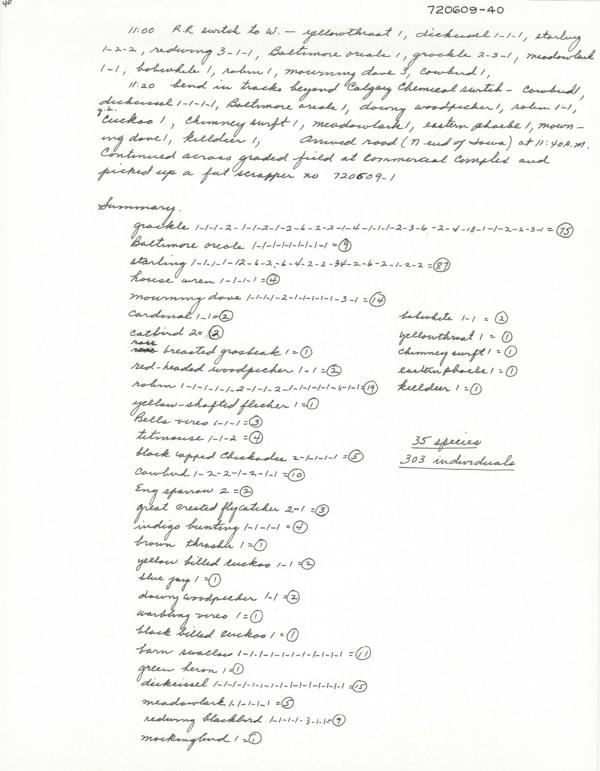 40
720609-40
11:00 R.R switch to W. - yellowthroat 1, dickcissel 1-1-1, starling
1-2-2, redwing 3-1-1, Baltimore oriole 1, grackle 2-3-1, meadowlark
1-1, bobwhite 1, robin 1, mourning dove 3, cowbird 1,
11:20 bend in tracks beyond Calgay Chemical switch - cowbird 1,
dickcissel 1-1-1-1, Baltimore oriole 1, downy woodpecker 1, robin 1-1,
y.b. cuckoo 1, chimney swift 1, meadowlark 1, eastern phoebe 1, mourn-
ing dove 1, killdeer 1, Arrived road (N end of Iowa) at 11:40 A.M.
Continued across graded field at Commercial Complex and
picked up a fat scrapper no 720609-1
Summary.
grackle 1-1-1-2-1-1-2-1-2-6-2-2-1-4-1-1-1-2-3-6-2-4-18-1-1-2-2-3-1 = 75
Baltimore oriole 1-1-1-1-1-1-1-1-1 = 9
starling 1-1-1-1-12-6-2-6-4-2-2-34-2-6-2-1-2-2 = 87
house wren 1-1-1-1 = 4
mourning dove 1-1-1-1-2-1-1-1-1-1-3-1 = 14
cardinal 1-1 = 2
catbird 2 = 2
rose breasted grosbeak 1 = 1
red-headed woodpecker 1-1 = 2
robin 1-1-1-1-1-2-1-1-2-1-1-1-1-1-1-1-1 = 19
yellow-shafted flicker 1 = 1
Bells vireo 1-1-1 = 3
titmouse 1-1-2 = 4
black capped Chickadee 2-1-1-1-1 = 5
Cowbird 1-2-2-1-2-1-1 = 10
Eng sparrow 2 = 2
great crested flycatcher 2-1 = 3
indigo bunting 1-1-1-1 = 4
brown thrasher 1 = 1
yellow billed cuckoo 1-1 = 2
blue jay 1 = 1
downy woodpecker 1-1 = 2
warbling vireo 1 = 1
black billed cuckoo 1 = 1
barn swallow 1-1-1-1-1-1-1-1-1-1-1 = 11
green heron 1 = 1
dickcissel 1-1-1-1-1-1-1-1-1-1-1-1-1-1-1 = 15
meadowlark 1-1-1-1-1 = 5
redwing blackbird 1-1-1-1-3-1-1 = 9
mockingbird 1 = 1
bobwhite 1-1 = 2
yellowthroat 1 = 1
chimney swift 1 = 1
eastern phoebe 1 = 1
killdeer 1 = 1
35 species
303 individuals